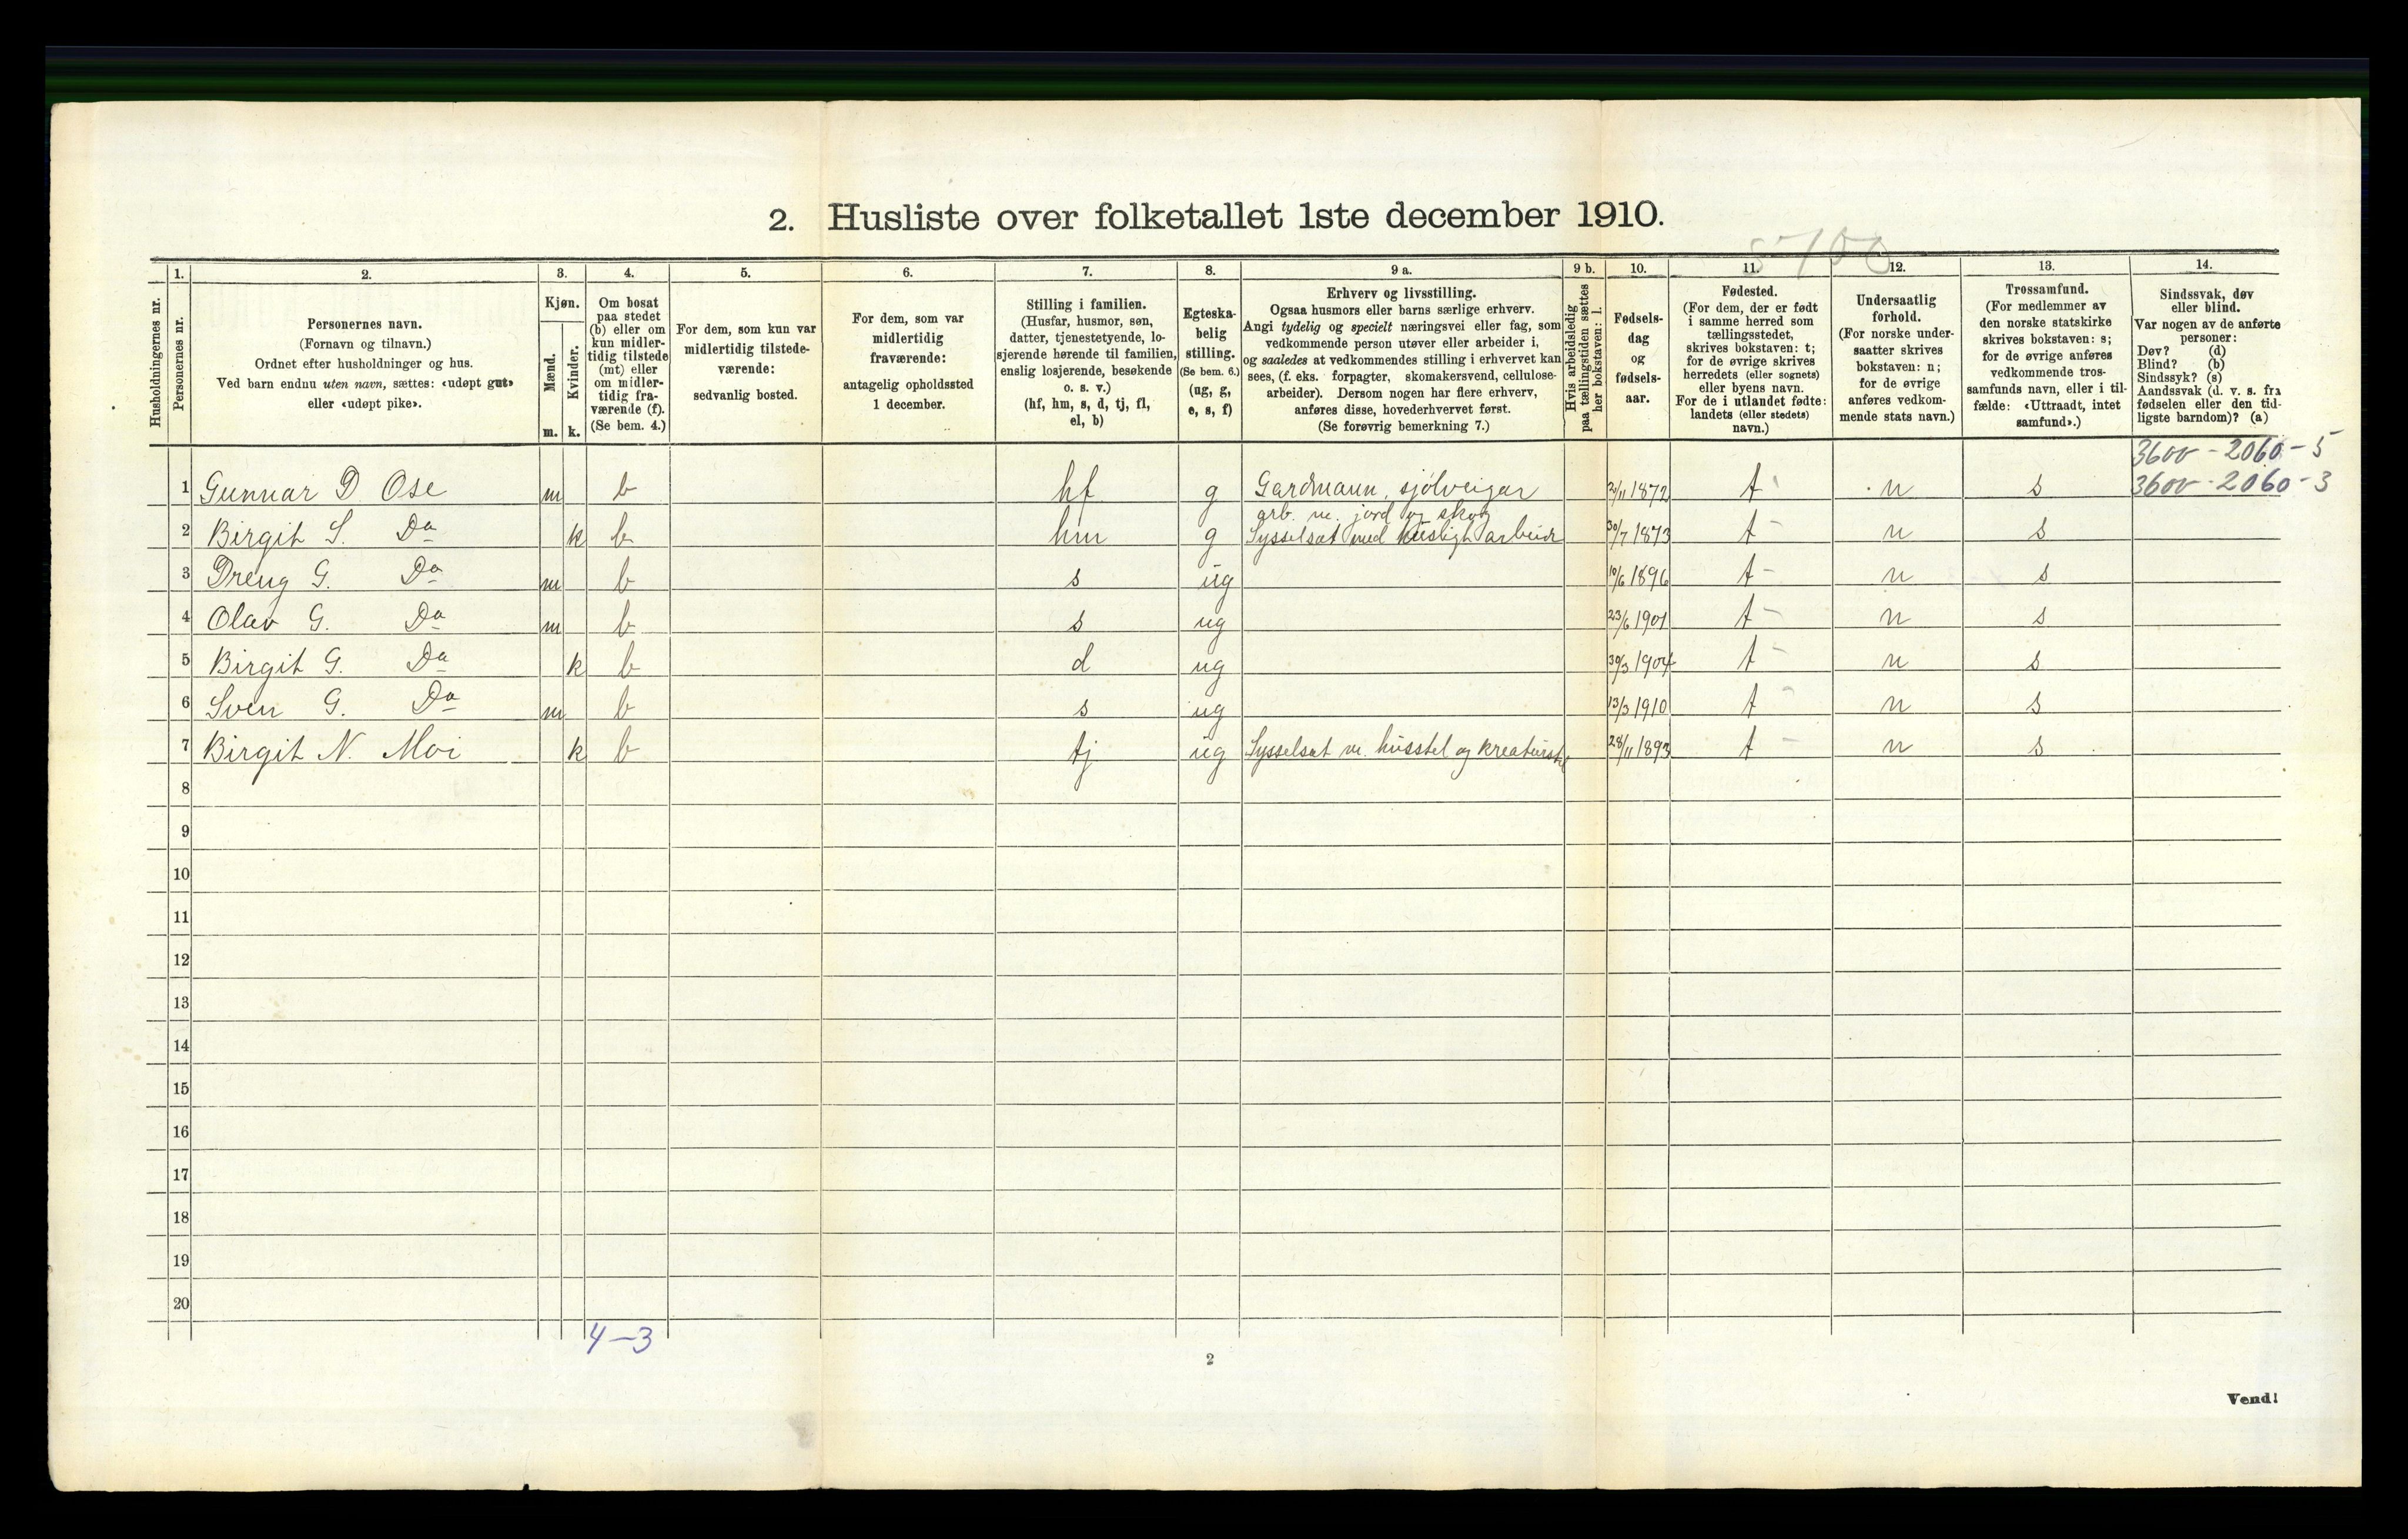 2. Husliste over folketallet 1ste december 1910.
5700
Husholdningernes nr.
1.
Personernes nr.
2.
Personernes navn.
(Fornavn og tilnavn.)
Ordnet efter husholdninger og hus.
Ved barn endnu uten navn, sættes: «udøpt gut»
eller «udøpt pike».
3.
Kjøn.
Mænd.
Kvinder.
m. k.
4.
Om bosat
paa stedet
(b) eller om
kun midler-
tidig tilstede
(mt) eller
om midler-
tidig fra-
værende (f).
(Se bem. 4.)
5.
For dem, som kun var
midlertidig tilstede-
værende:
sedvanlig bosted.
6.
For dem, som var
midlertidig
fraværende:
antagelig opholdssted
1 december.
7.
Stilling i familien.
(Husfar, husmor, søn,
datter, tjenestetyende, lo-
sjerende hørende til familien,
enslig losjerende, besøkende
o. s. v.)
(hf, hm, s, d, tj, fl,
el, b)
8.
Egteska-
belig
stilling.
(Se bem. 6.)
(ug, g,
e, s, f)
9 a.
Erhverv og livsstilling.
Ogsaa husmors eller barns særlige erhverv.
Angi tydelig og specielt næringsvei eller fag, som
vedkommende person utøver eller arbeider i,
og saaledes at vedkommendes stilling i erhvervet kan
sees, (f. eks. forpagter, skomakersvend, cellulose-
arbeider). Dersom nogen har flere erhverv,
anføres disse, hovederhvervet først.
(Se forøvrig bemerkning 7.)
9 b.
Hvis arbeidsledig
paa tællingstiden sættes
her bokstaven: l.
10.
Fødsels-
dag
og
fødsels-
aar.
11.
Fødested.
(For dem, der er født
i samme herred som
tællingsstedet,
skrives bokstaven: t;
for de øvrige skrives
herredets (eller sognets)
eller byens navn.
For de i utlandet fødte:
landets (eller stedets)
navn.)
12.
Undersaatlig
forhold.
(For norske under-
saatter skrives
bokstaven: n;
for de øvrige
anføres vedkom-
mende stats navn.)
13.
Trossamfund.
(For medlemmer av
den norske statskirke
skrives bokstaven: s;
for de øvrige anføres
vedkommende tros-
samfunds navn, eller i til-
fælde: «Uttraadt, intet
samfund».)
14.
Sindssvak, døv
eller blind.
Var nogen av de anførte
personer:
Døv? (d)
Blind? (b)
Sindssyk? (s)
Aandssvak (d. v. s. fra
fødselen eller den tid-
ligste barndom)? (a)
3600 - 2060 - 5
1 Gunnar D Ose m b hf g Gardmann, sjölveigar 2/11 1872 t n s 3600 - 2060 - 3
arb. m. jord og skog
2 Birgit S. Do k b hm g Sysselsat med husligt arbeide 30/7 1873 t n s
3 Dreng G. Do m b s ug 10/6 1896 t n s
4 Olav G. Do m b s ug 23/6 1901 t n s
5 Birgit G. Do k b d ug 30/3 1904 t n s
6 Sven G. Do m b s ug 13/3 1910 t n s
7 Birgit N. Moi k b tj ug Sysselsat m. husstel og kreaturstel 28/11 1893 t n s
8
9
10
11
12
13
14
15
16
17
18
19
20
4-3
2
Vend!